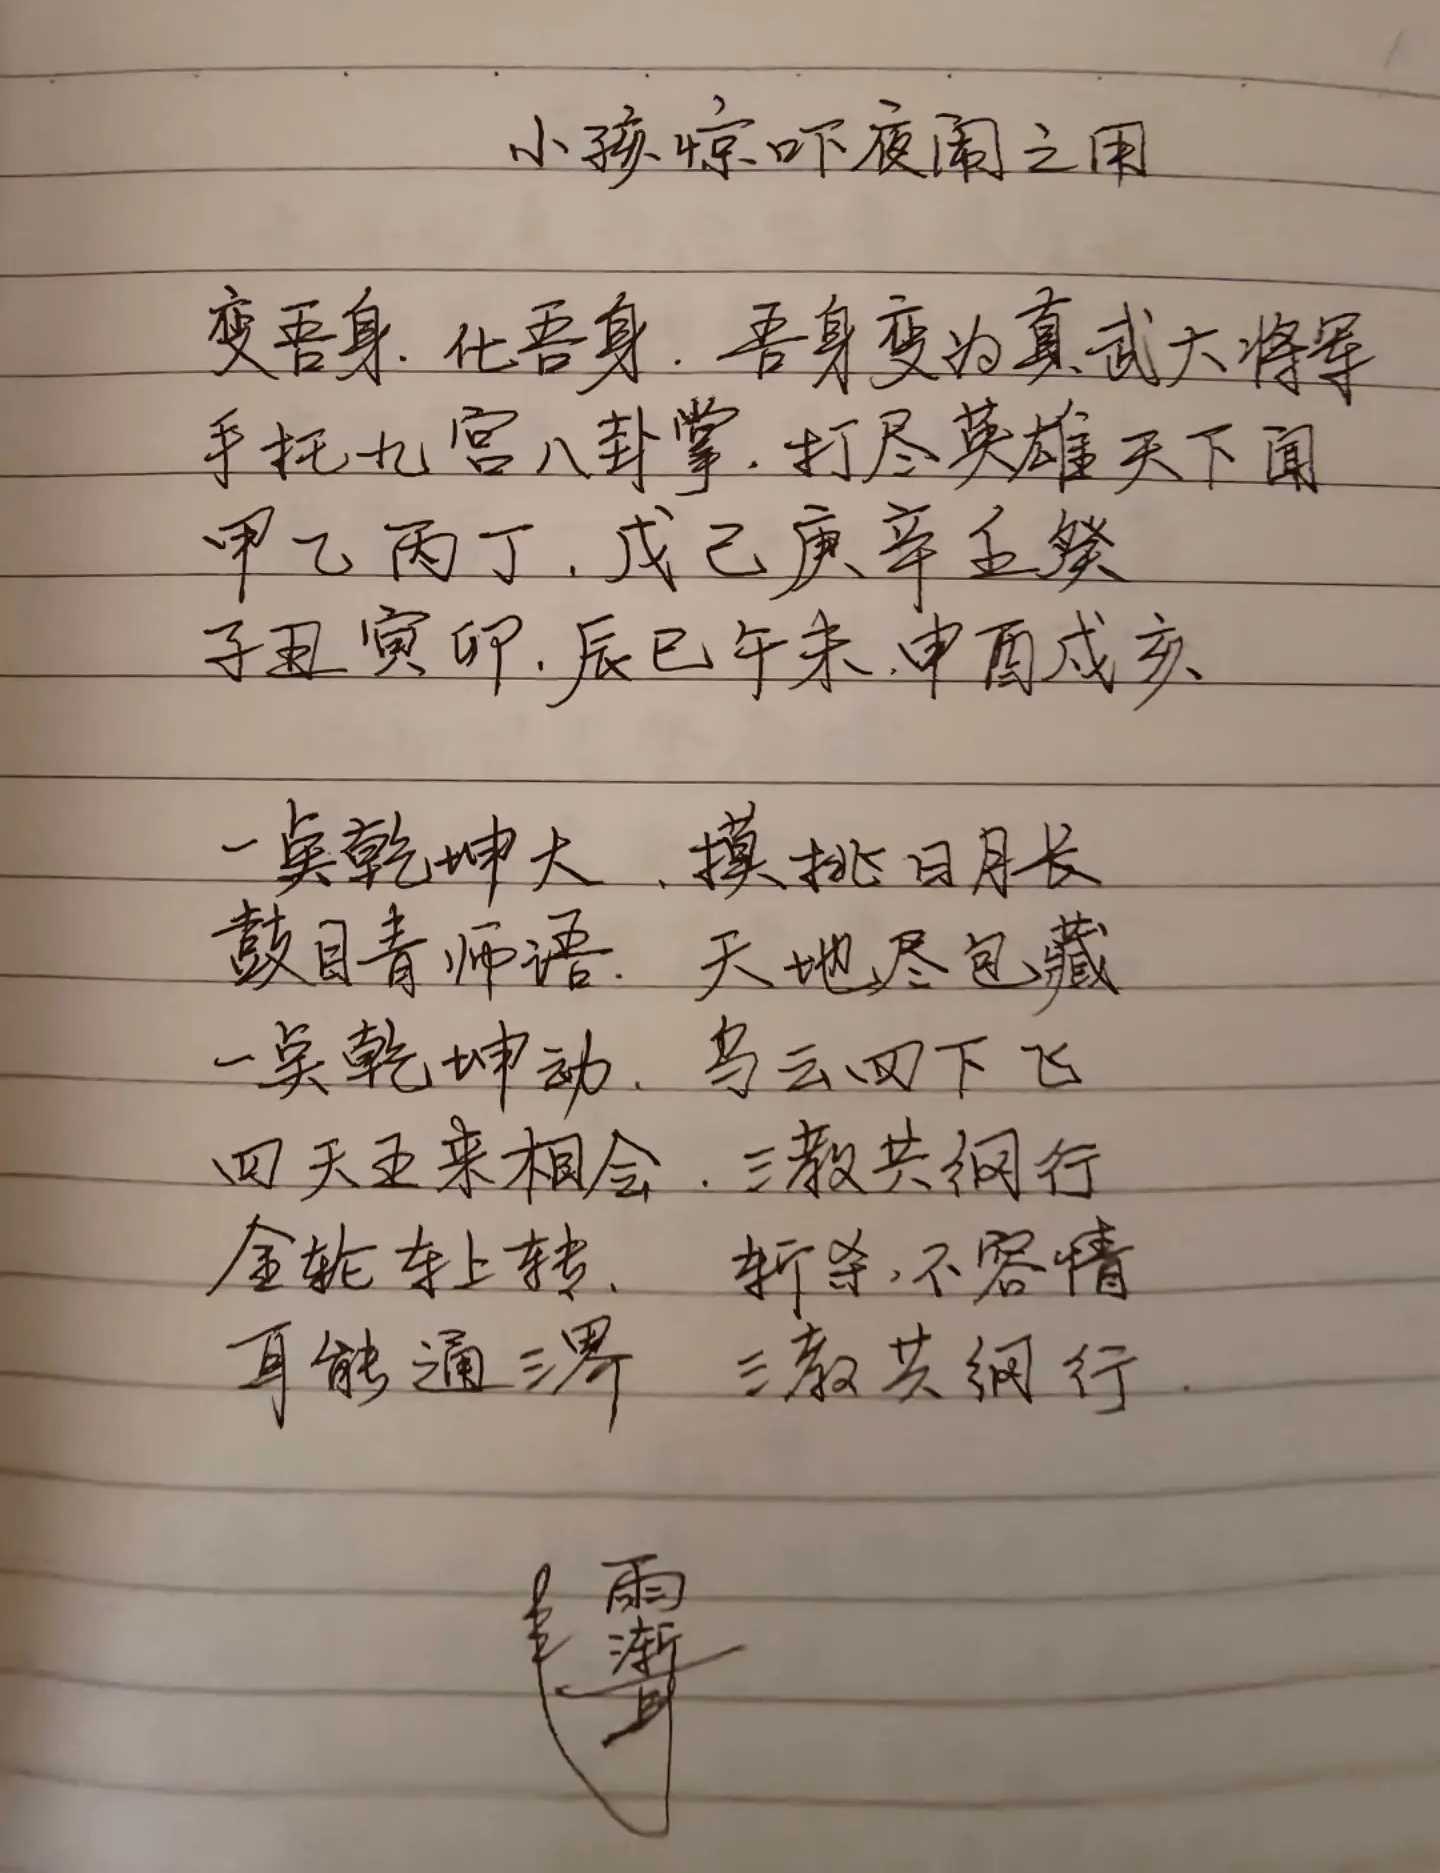 小孩惊吓夜闹之用
变吾身.化吾身.吾身变为真武大将军
手托九宫八卦掌.打尽英雄天下闻
甲乙丙丁.戊己庚辛壬癸
子丑寅卯.辰巳午未.申酉戌亥
一奌乾坤大.摸挑日月长
鼓目青师语.天地尽包藏
一奌乾坤动.乌云四下飞
四天王来相会.三教共纲行
金轮车上转.斩杀不容情
耳能通三界 三教共纲行.